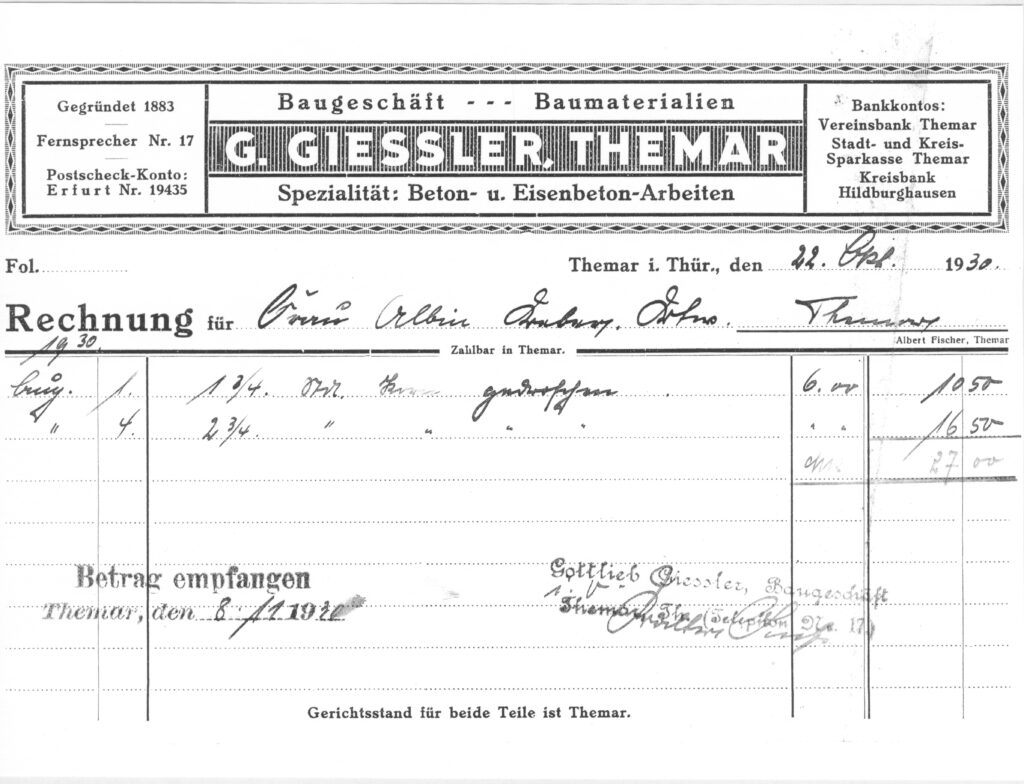 Gegründet 1883
Fernsprecher Nr. 17
Postscheck-Konto:
Erfurt Nr. 19435
Baugeschäft --- Baumaterialien
G. GIESSLER, THEMAR
Spezialität: Beton- u. Eisenbeton-Arbeiten
Bankkontos:
Vereinsbank Themar
Stadt- und Kreis-
Sparkasse Themar
Kreisbank
Hildburghausen
Fol.
Themar i. Thür., den 22. Okt. 1930.
Rechnung für Frau Albin Themar
Albert Fischer, Themar
1930.
Zahlbar in Themar.
Aug. 1. 1 3/4. Std. Korn gedroschen. 6.00 10 50
" 4. 2 3/4. " " " " " " 16 50
27 00
Betrag empfangen
Themar, den 8/11 1930
Gottlieb Giessler, Baugeschäft
Themar, Th. (Telephon Nr. 17)
Gerichtsstand für beide Teile ist Themar.